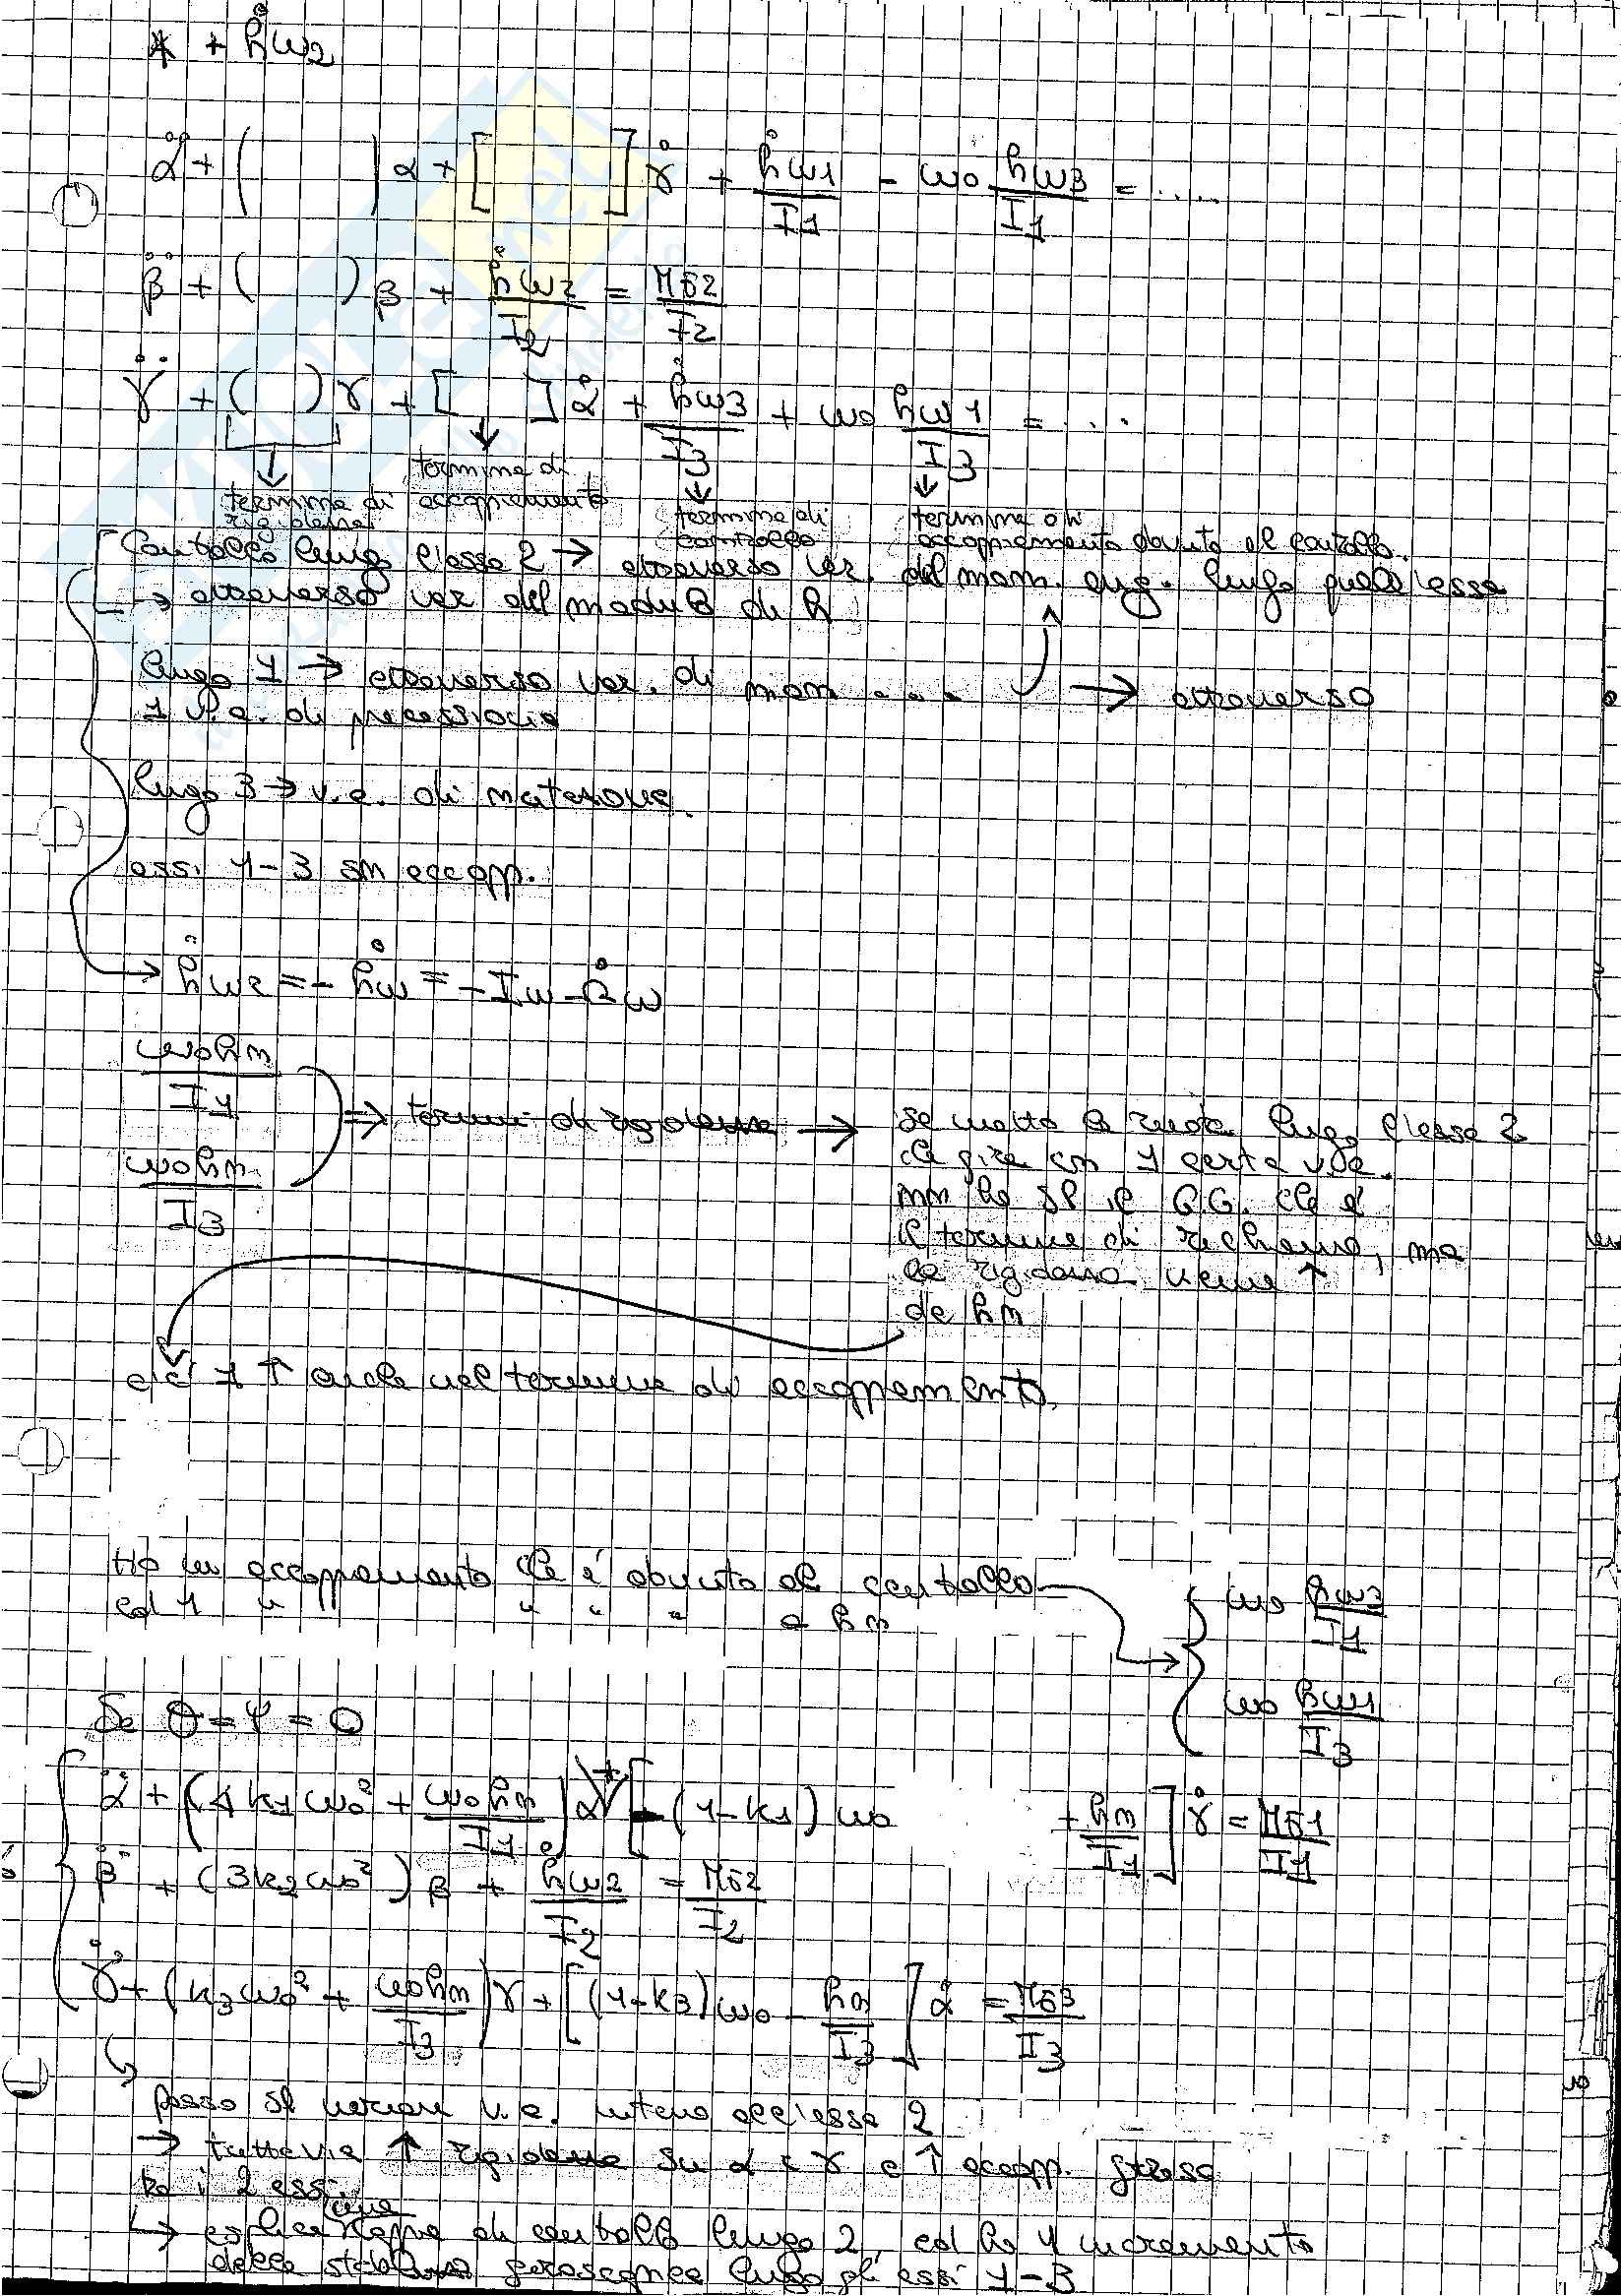 * + ḣw2
α̈ + ( ) α + [ ] γ̇ + ḣw1/I1 - ω0 hw3/I1 = ....
β̈ + ( ) β + ḣw2/I2 = Mδ2/I2
γ̈ + ( ) γ + [ ] α̇ + ḣw3/I3 + ω0 hw1/I3 = ...
termine di rigidezza
termine di accoppiamento
termine di controllo
termine di accoppiamento dovuto al controllo.
Controllo lungo l'asse 2 → attraverso var. del mom. ang. lungo quell'asse
→ attraverso var del modulo di h
lungo 1 → attraverso var. di mom .... → attraverso
1 v.a. di precessione
lungo 3 → v.a. di nutazione.
assi 1-3 sn accopp.
ḣw2 = - ḣw = - Iw Ω̇w
ω0hn/I1
ω0hn/I3
⇒ termini di rigidezza → se metto la ruota lungo l'asse 2
che gira cn 1 certa v.a.
nn ho sl il G.G. che è
il termine di richiamo, ma
la rigidezza viene ↑
da hn
c'è 1 ↑ anche nel termine di accoppiamento.
Ho un accoppiamento che è dovuto al controllo
ed 1 " " " " a hn
ω0 hw3/I1
ω0 hw1/I3
Se θ = ψ = 0
α̈ + (4k1ω0² + ω0hn/I1) α + [-(1-k1) ω0 + hn/I1] γ̇ = Mδ1/I1
β̈ + (3k2ω0²) β + ḣw2/I2 = Mδ2/I2
γ̈ + (k3ω0² + ω0hn/I3) γ + [(1-k3) ω0 - hn/I3] α̇ = Mδ3/I3
posso sl variare v.a. intorno all'asse 2
→ tuttavia ↑ rigidezza su α e γ e ↑ accopp.
tra i 2 assi
di controllo lungo 2, ed ho 1 incremento
della giroscopica lungo gli assi 1-3